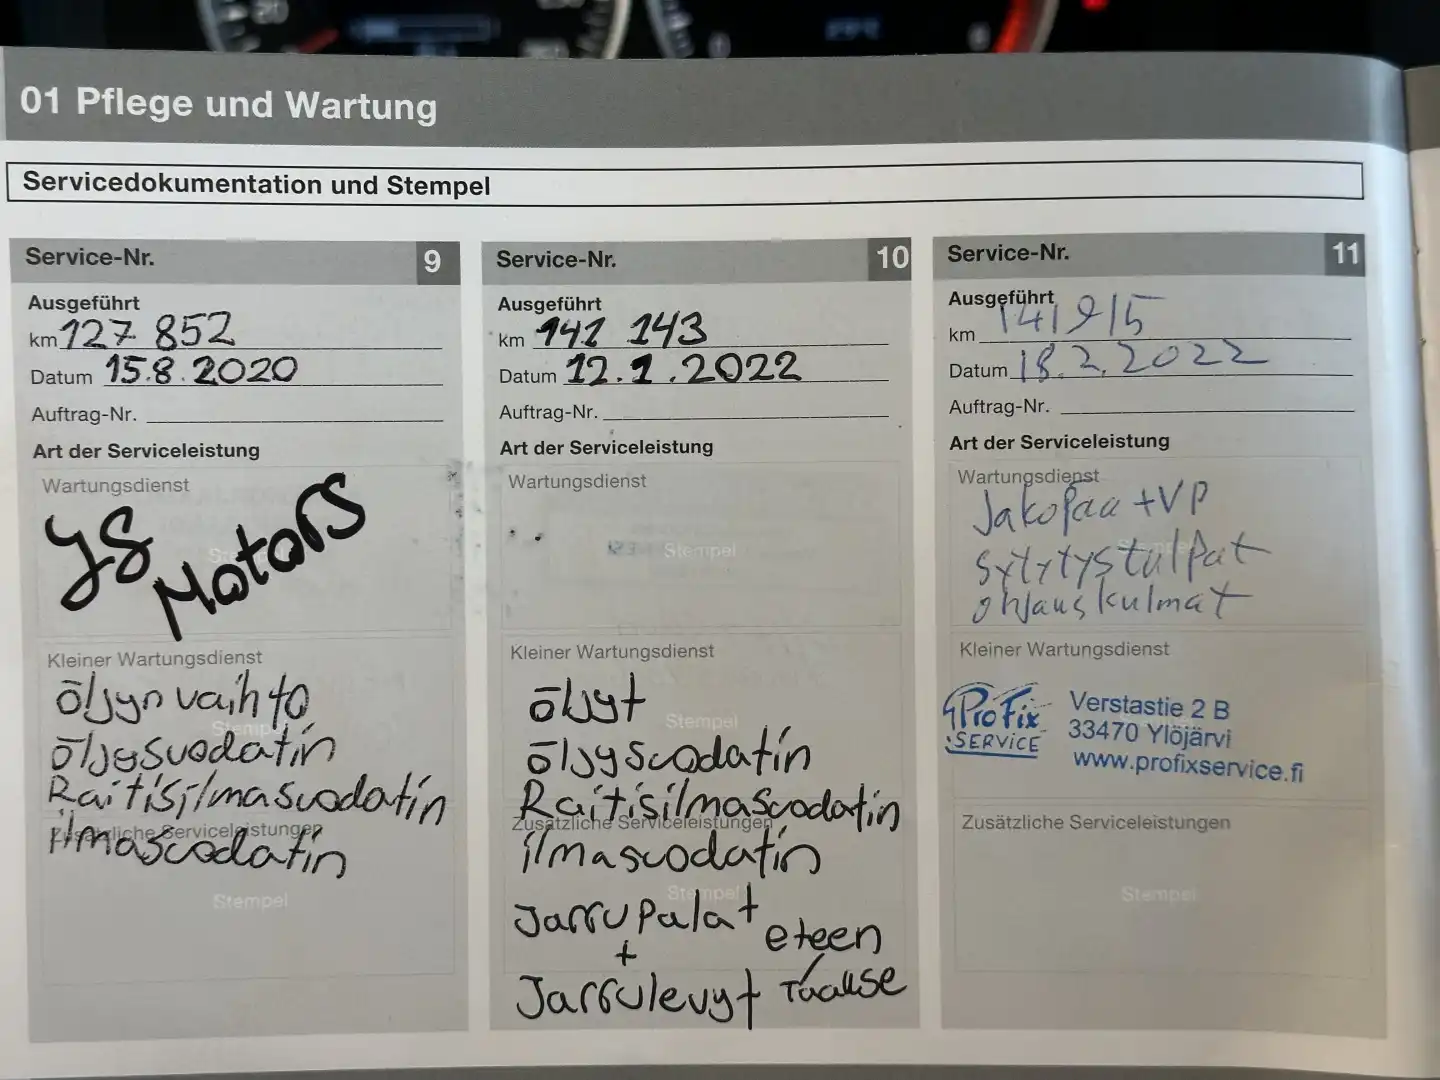 01 Pflege und Wartung
Servicedokumentation und Stempel
Service-Nr. 9
Ausgeführt
km 127 852
Datum 15.8.2020
Auftrag-Nr.
Art der Serviceleistung
Wartungsdienst
YS Motors
Kleiner Wartungsdienst
öljyn vaihto
Stempel
öljysuodatin
Raitisilmasuodatin
Zusätzliche Serviceleistungen
ilmasuodatin
Stempel
Service-Nr. 10
Ausgeführt
km 141 143
Datum 12.1.2022
Auftrag-Nr.
Art der Serviceleistung
Wartungsdienst
Stempel
Kleiner Wartungsdienst
öljyt
Stempel
öljysuodatin
Raitisilmasuodatin
Zusätzliche Serviceleistungen
ilmasuodatin
Stempel
Jarrupalat eteen
+ /
Jarrulevyt Taakse
Service-Nr. 11
Ausgeführt
km 141915
Datum 18.2.2022
Auftrag-Nr.
Art der Serviceleistung
Wartungsdienst
Jakopaa + VP
Sytytystulpat
ohjauskulmat
Kleiner Wartungsdienst
ProFix SERVICE
Verstastie 2 B
33470 Ylöjärvi
www.profixservice.fi
Zusätzliche Serviceleistungen
Stempel